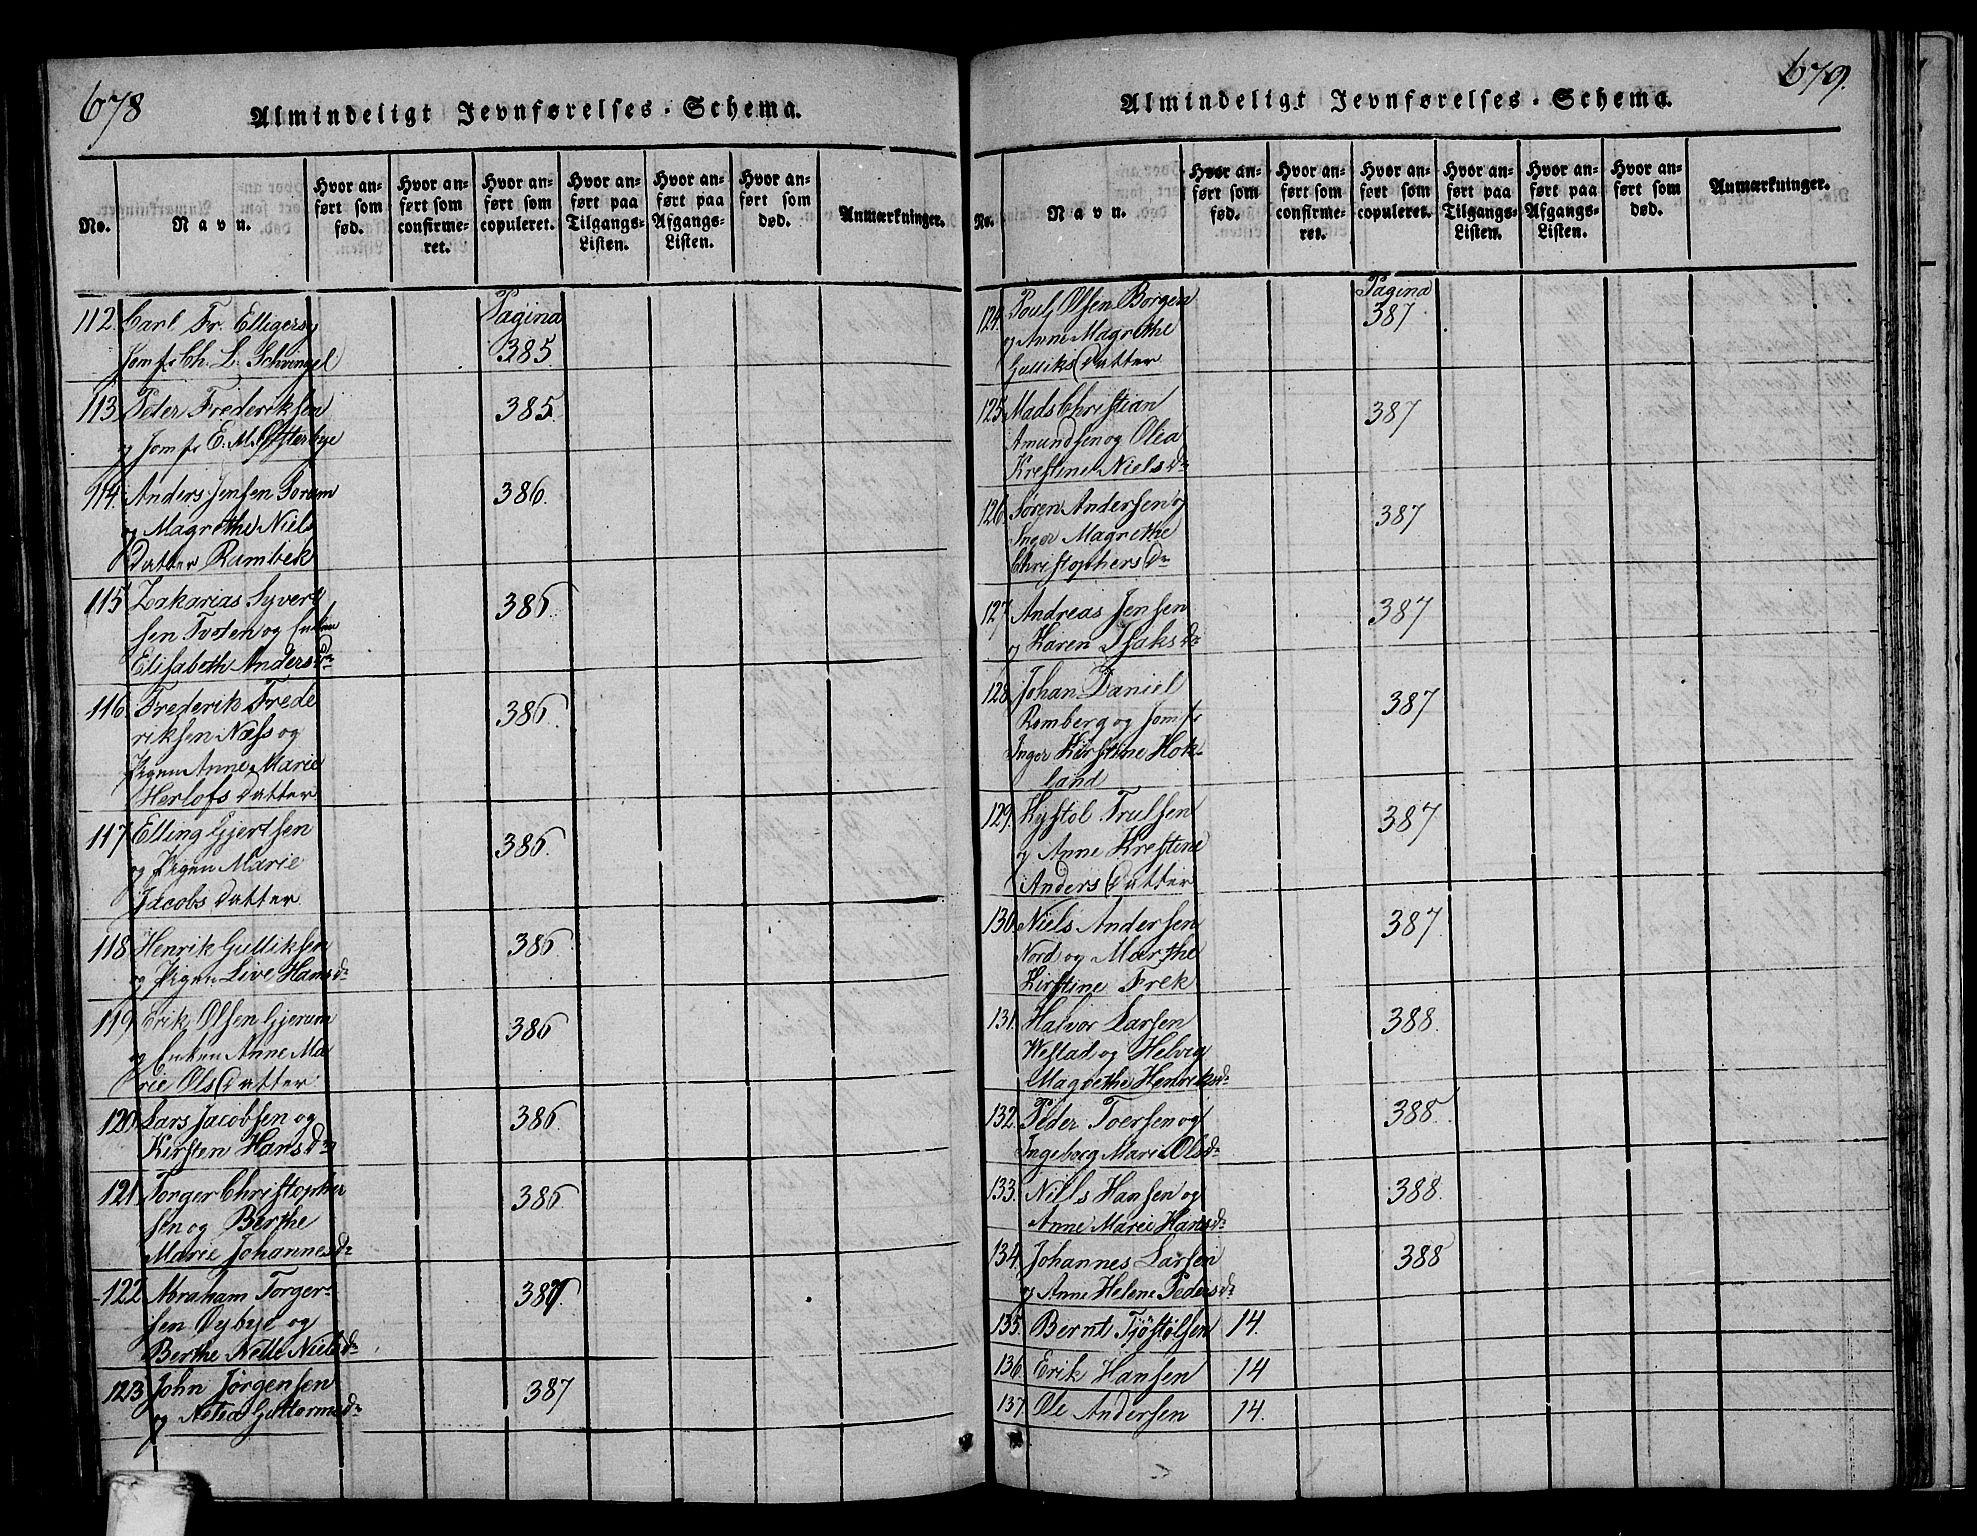 678
Almindeligt Jevnførelses-Schema.
No.
Navn.
Hvor anført som fød.
Hvor anført som confirmeret.
Hvor anført som copuleret.
Hvor anført paa Tilgangs-Listen.
Hvor anført paa Afgangs-Listen.
Hvor anført som død.
Anmærkninger.
112. Carl Fr. Elligers Pagina
Jomfr Ch. L. 385.
113 Peder Frederiksen 385.
og Jomfr E. M. Østerbye
114. Anders Jensen 386.
og Magrethe Niels
Datter Rambek
115 Zakarias Syvert 386.
sen Tveten og Enken
Elisabeth Andersdr
116. Frederik Frede 386.
riksen Næss og
Pigen Anne Marie
Herlofs Datter
117 Elling Gjertsen 386.
og Pigen Marie
Jacobs Datter
118 Henrik Gulliksen 386.
og Pigen Live Hansdr
119 Erik Olsen Gjerum 386
og Enken Anne Ma
rie Ols Datter
120 Lars Jacobsen og 386
Kirsten Hansdr
121 Torger Christopher 386
sen og Berthe
Marie Johannesdr
122 Abraham Torger- 387.
sen Dybye og
Berthe Nelle Nielsdr
123 John Jørgensen 387
og Guttormsdr
679.
Almindeligt Jevnførelses-Schema.
No.
Navn.
Hvor anført som fød.
Hvor anført som confirmeret.
Hvor anført som copuleret.
Hvor anført paa Tilgangs-Listen.
Hvor anført paa Afgangs-Listen.
Hvor anført som død.
Anmærkninger.
124. Poul Olsen Borgen Pagina
og Anne Magrethe 387.
Gulliks Datter
125. Mads Christian 387
Amundsen og Olea
Krestine Nielsdr
126. Søren Andersen og 387
Inger Magrethe
Christophersdr
127. Andreas Jensen 387
og Karen Isaksdr
128. Johan Daniel 387
Ramberg og Jomfr
Inger Kirstine Hok-
land
129. Kystol Trulsen 387
og Anne Krestine
Anders Datter
130. Niels Andersen 387.
Nord og Marthe
Kirstine Frek
131. Halvor Larsen 388.
Westad og Helvig
Magrethe Henriksdr
132. Peder Toersen og 388.
Ingeborg Marie Olsdr
133. Niels Hansen og 388.
Anne Marie Hansdr
134. Johannes Larsen 388
og Anne Helene Pedersdr
135. Bernt Tjøstolsen 14.
136. Erik Hansen 14
137 Ole Andersen 14.